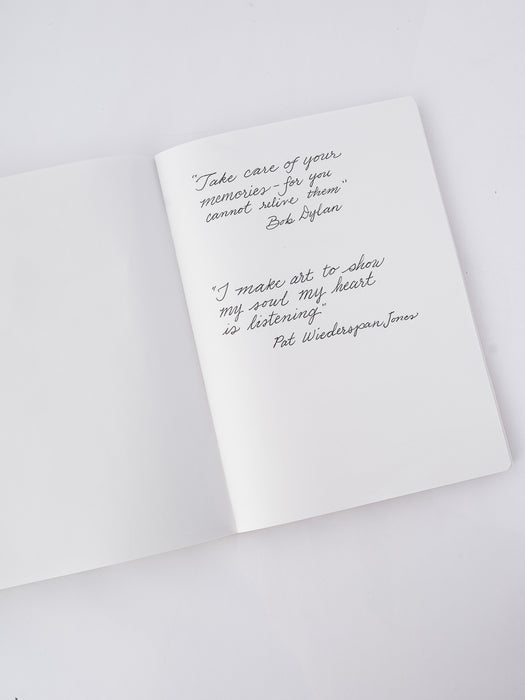 "Take care of your
memories - for you
cannot relive them"
Bob Dylan
"I make art to show
my soul my heart
is listening"
Pat Wiederspan Jones